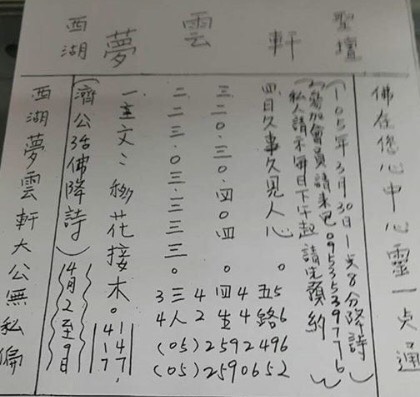 西湖夢雲軒聖壇
佛在您心中心靈一点通
(105年3月30日1点8分降詩)
(2)参加會員請来电0953539776
私人請不每日下午起請先預約
四日久事久見人心。五5路6
三二0.三0.四0.四。4四4生
二二三.0.三.三.三三。3三4人2
一.主文:移花接木。
(05)2592496
(05)2590652
(濟公活佛降詩)4月2至9日
414
717
西湖夢雲軒大公無私偏